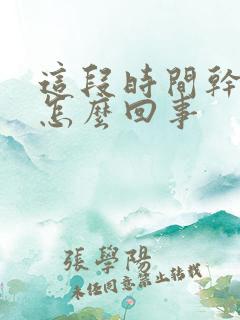 這段時間幹
怎麼回事
張學陽
未经同意禁止转载